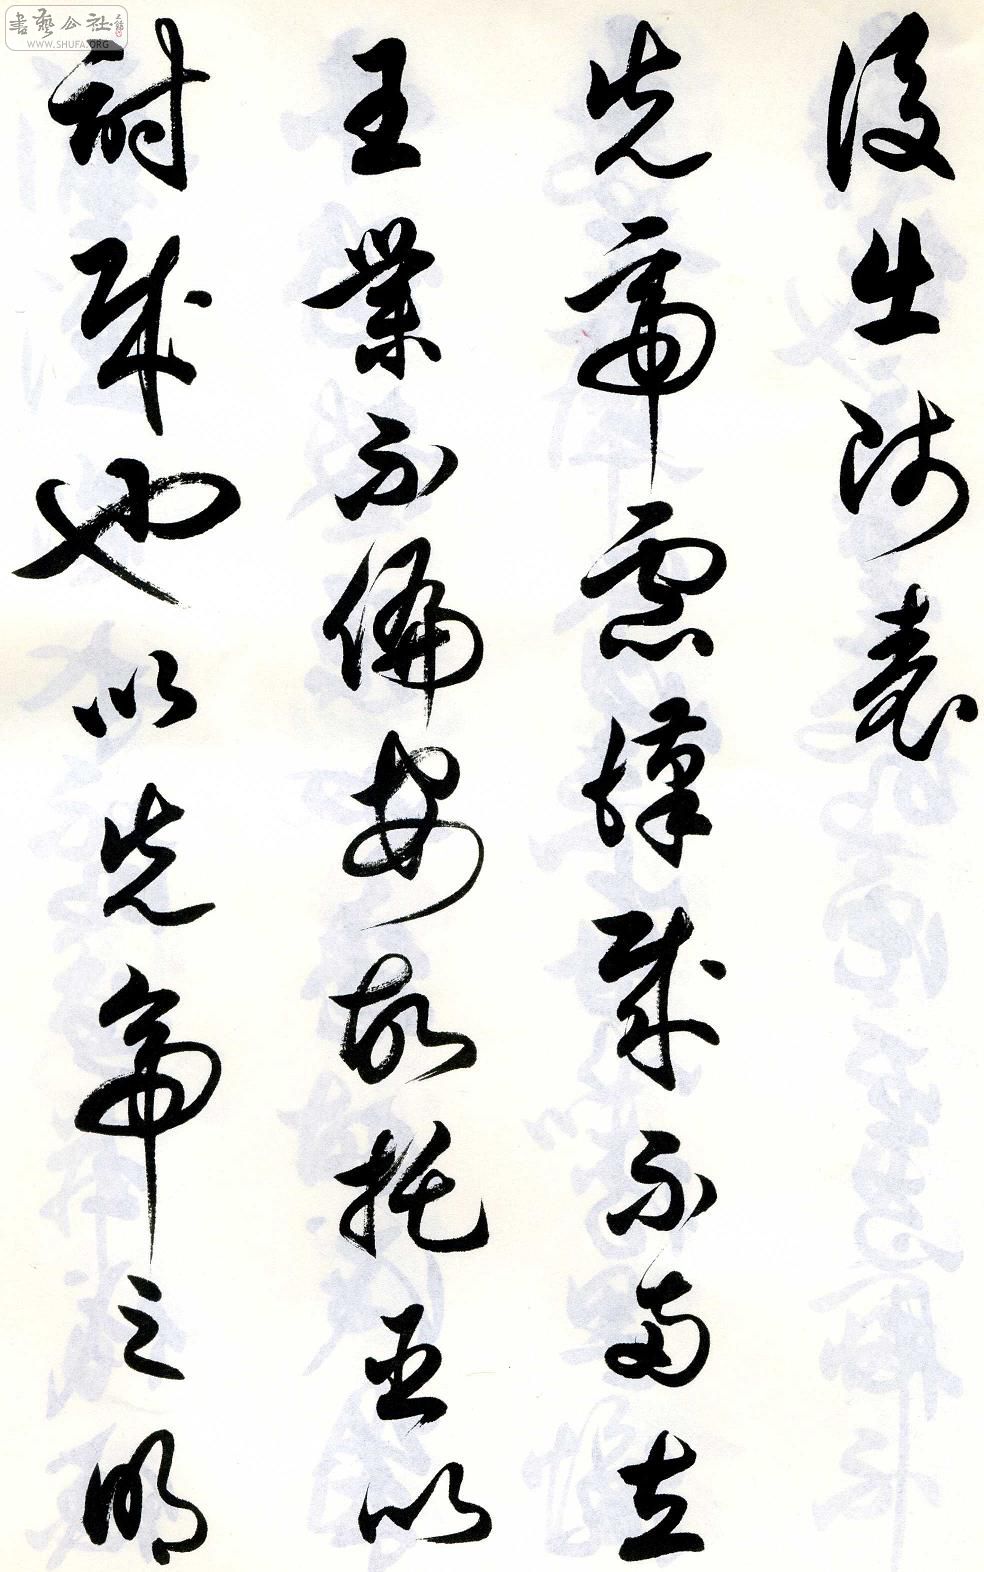 後出師表
先帝慮漢賊不兩立
王業不偏安故托臣以
討賊也以先帝之明
書藝公社
WWW.SHUFA.ORG